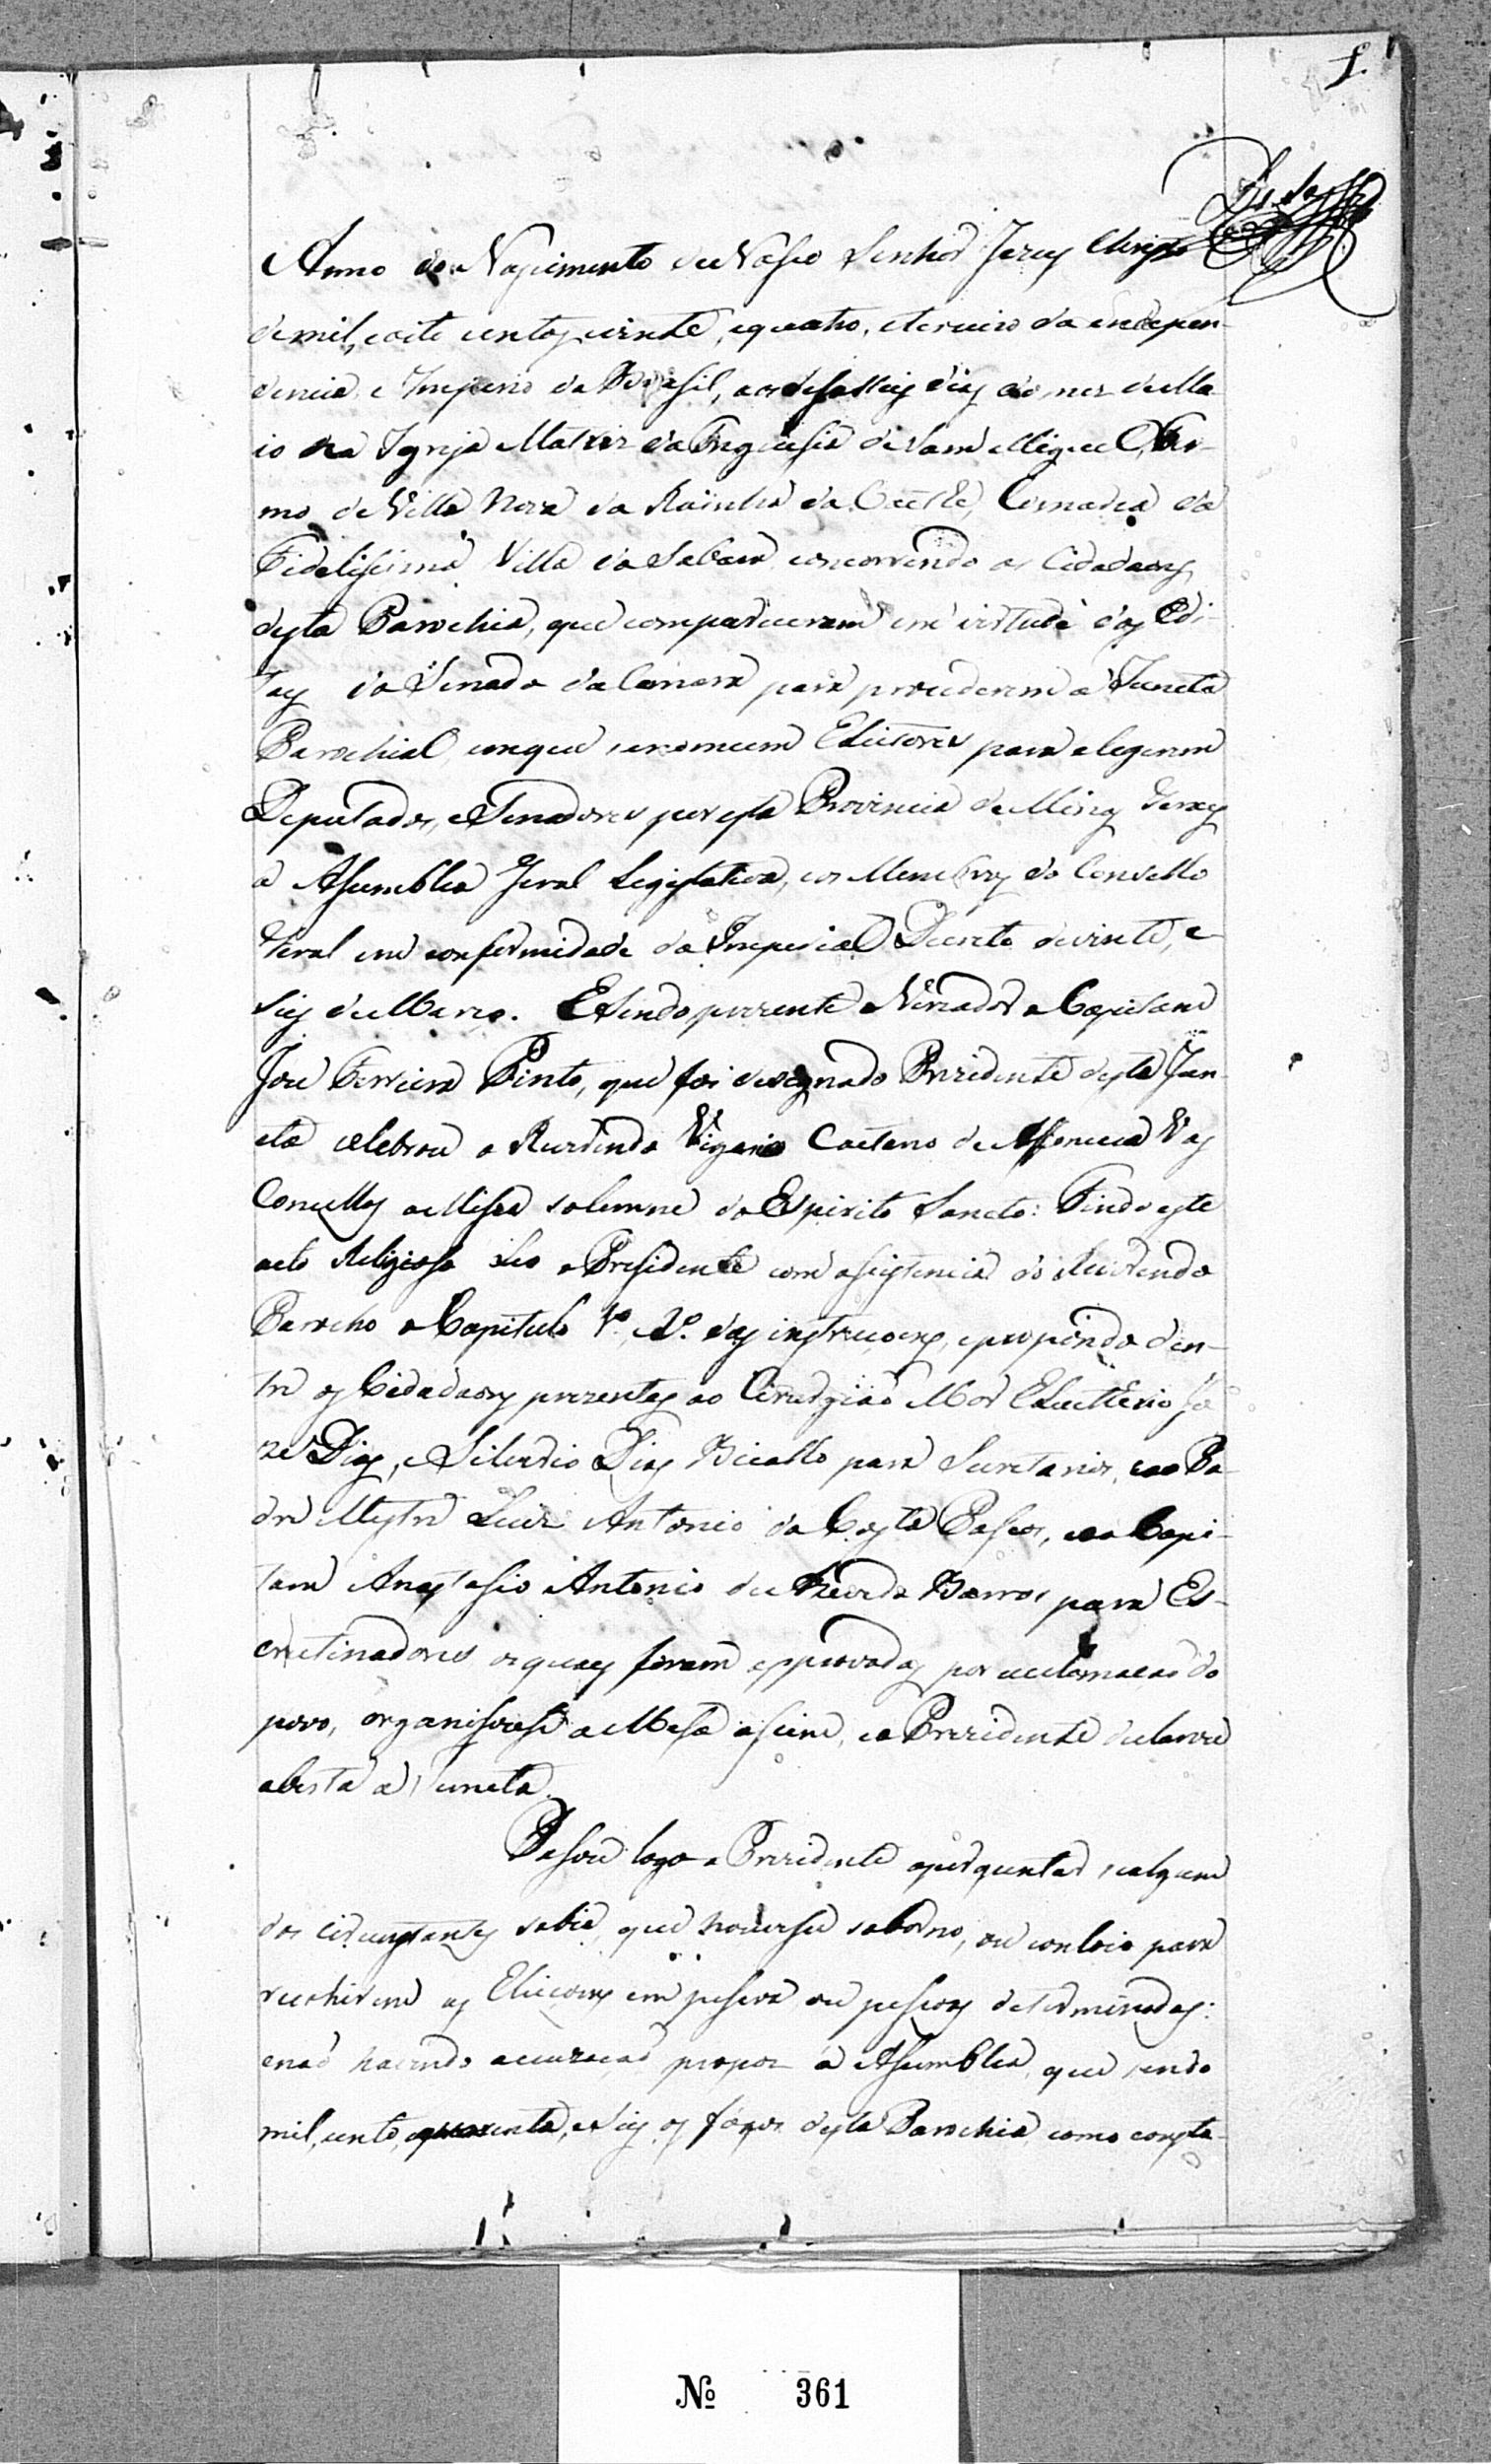 1
Anno do Nascimento de Nosso Senhor Jezus Christo
de mil, e oito centos, e vinte, e quatro, e terceiro da indepen-
dencia, e Imperio do Brasil, aos desasseis dias do mez de Ma
io na Igreja Matriz da Freguesia de Sam Miguel, Ter-
mo de Villa Nova da Rainha do Caethe, Comarca da
Fidelissima Villa do Sabará concorrendo os Cidadaons
desta Parochia, que compareceram em virtude dos Edi-
taes do Senado da Camera para procederem a Juncta
Parochial em que se nomeem Eleitores para elegerem
Deputados, e Senadores por esta Provincia de Minas Geraes
á Assemblea Geral Legislativa, e os Membros do Conselho
Geral em conformidade do Imperial Decreto de vinte, e
seis de Março. E sendo prezente o Vereador o Capitam
Joze Ferreira Pinto, que foi designado Prezidente desta Jun-
cta celebrou o Reverendo Vigario Caetano de Affonceca Vas
Concellos a Missa solemne do Espirito Sancto: Findo este
acto Religioso leo o Presidente com assistencia do Reverendo
Parocho o Capitulo 1º, e 2º das instrucoens, e propondo den-
tre os Cidadaons prezentes ao Cirurgiaõ Mor Eleutherio Jo
ze Dias, e Silverio Dias Bicalho para Secretarios, e ao Pa
dre Mestre Luiz Antonio da Costa Passos, e ao Capi-
tam Anastasio Antonio de Azevedo Barros para Es-
crutinadores os quaes foram approvados por acclamacaõ do
povo, organisouse a Mesa assim, e o Prezidente declarou
aberta a Juncta.
Passou logo o Prezidente a perguntar se algum
dos circunstantes sabia, que houvesse soborno, ou conloio para
recahirem as Eleicoens em pessoa ou pessoas determinadas:
e naõ havendo accuzacaõ propoz á Assemblea, que sendo
mil, cento, e quarenta, e seis os fogos desta Parochia, como consta
Nº 361